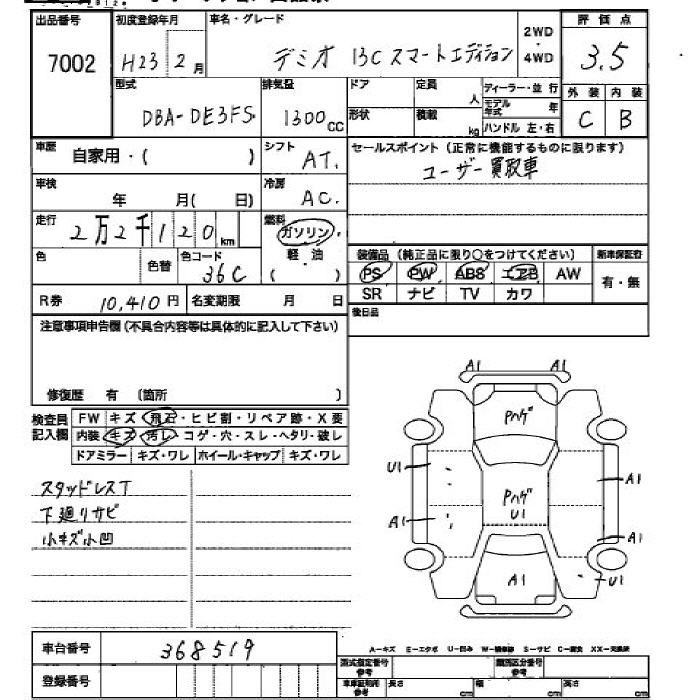 出品番号 初度登録年月 車名・グレード 2WD・4WD 評価点
7002 H23 2月 デミオ 13C スマートエディション 3.5
型式 排気量 ドア 定員 人 ディーラー・並行 外装 内装
DBA-DE3FS 1300cc 形状 積載 kg モデル年式 年 ハンドル 左・右 C B
車歴 自家用・( ) シフト AT. セールスポイント (正常に機能するものに限ります)
ユーザー買取車
車検 年 月( 日) 冷房 AC.
走行 2万2千120km 燃料 ガソリン・
色 色替 色コード 36C 軽油 ( )
装備品 (純正品に限り○をつけてください) 新車保証書
PS PW ABS エアB AW 有・無
SR ナビ TV カワ
R券 10,410円 名変期限 月 日 後日品
注意事項申告欄 (不具合内容等は具体的に記入して下さい)
修復歴 有 (箇所 )
検査員記入欄 FW キズ・飛石・ヒビ割・リペア跡・X要
内装 キズ・汚レ・コゲ・穴・スレ・ヘタリ・破レ
ドアミラー キズ・ワレ ホイール・キャップ キズ・ワレ
A1 A1
Pハゲ
U1 A1
Pハゲ
U1
A1 A1
A1 U1
スタッドレスT
下廻りサビ
小キズ小凹
A-キズ E-エクボ U-凹み W-補修跡 S-サビ C-腐食 XX-交換済
車台番号 368519
型式指定番号 参考 類別区分番号 参考
登録番号 車車証明用 参考 長さ cm 幅 cm 高さ cm